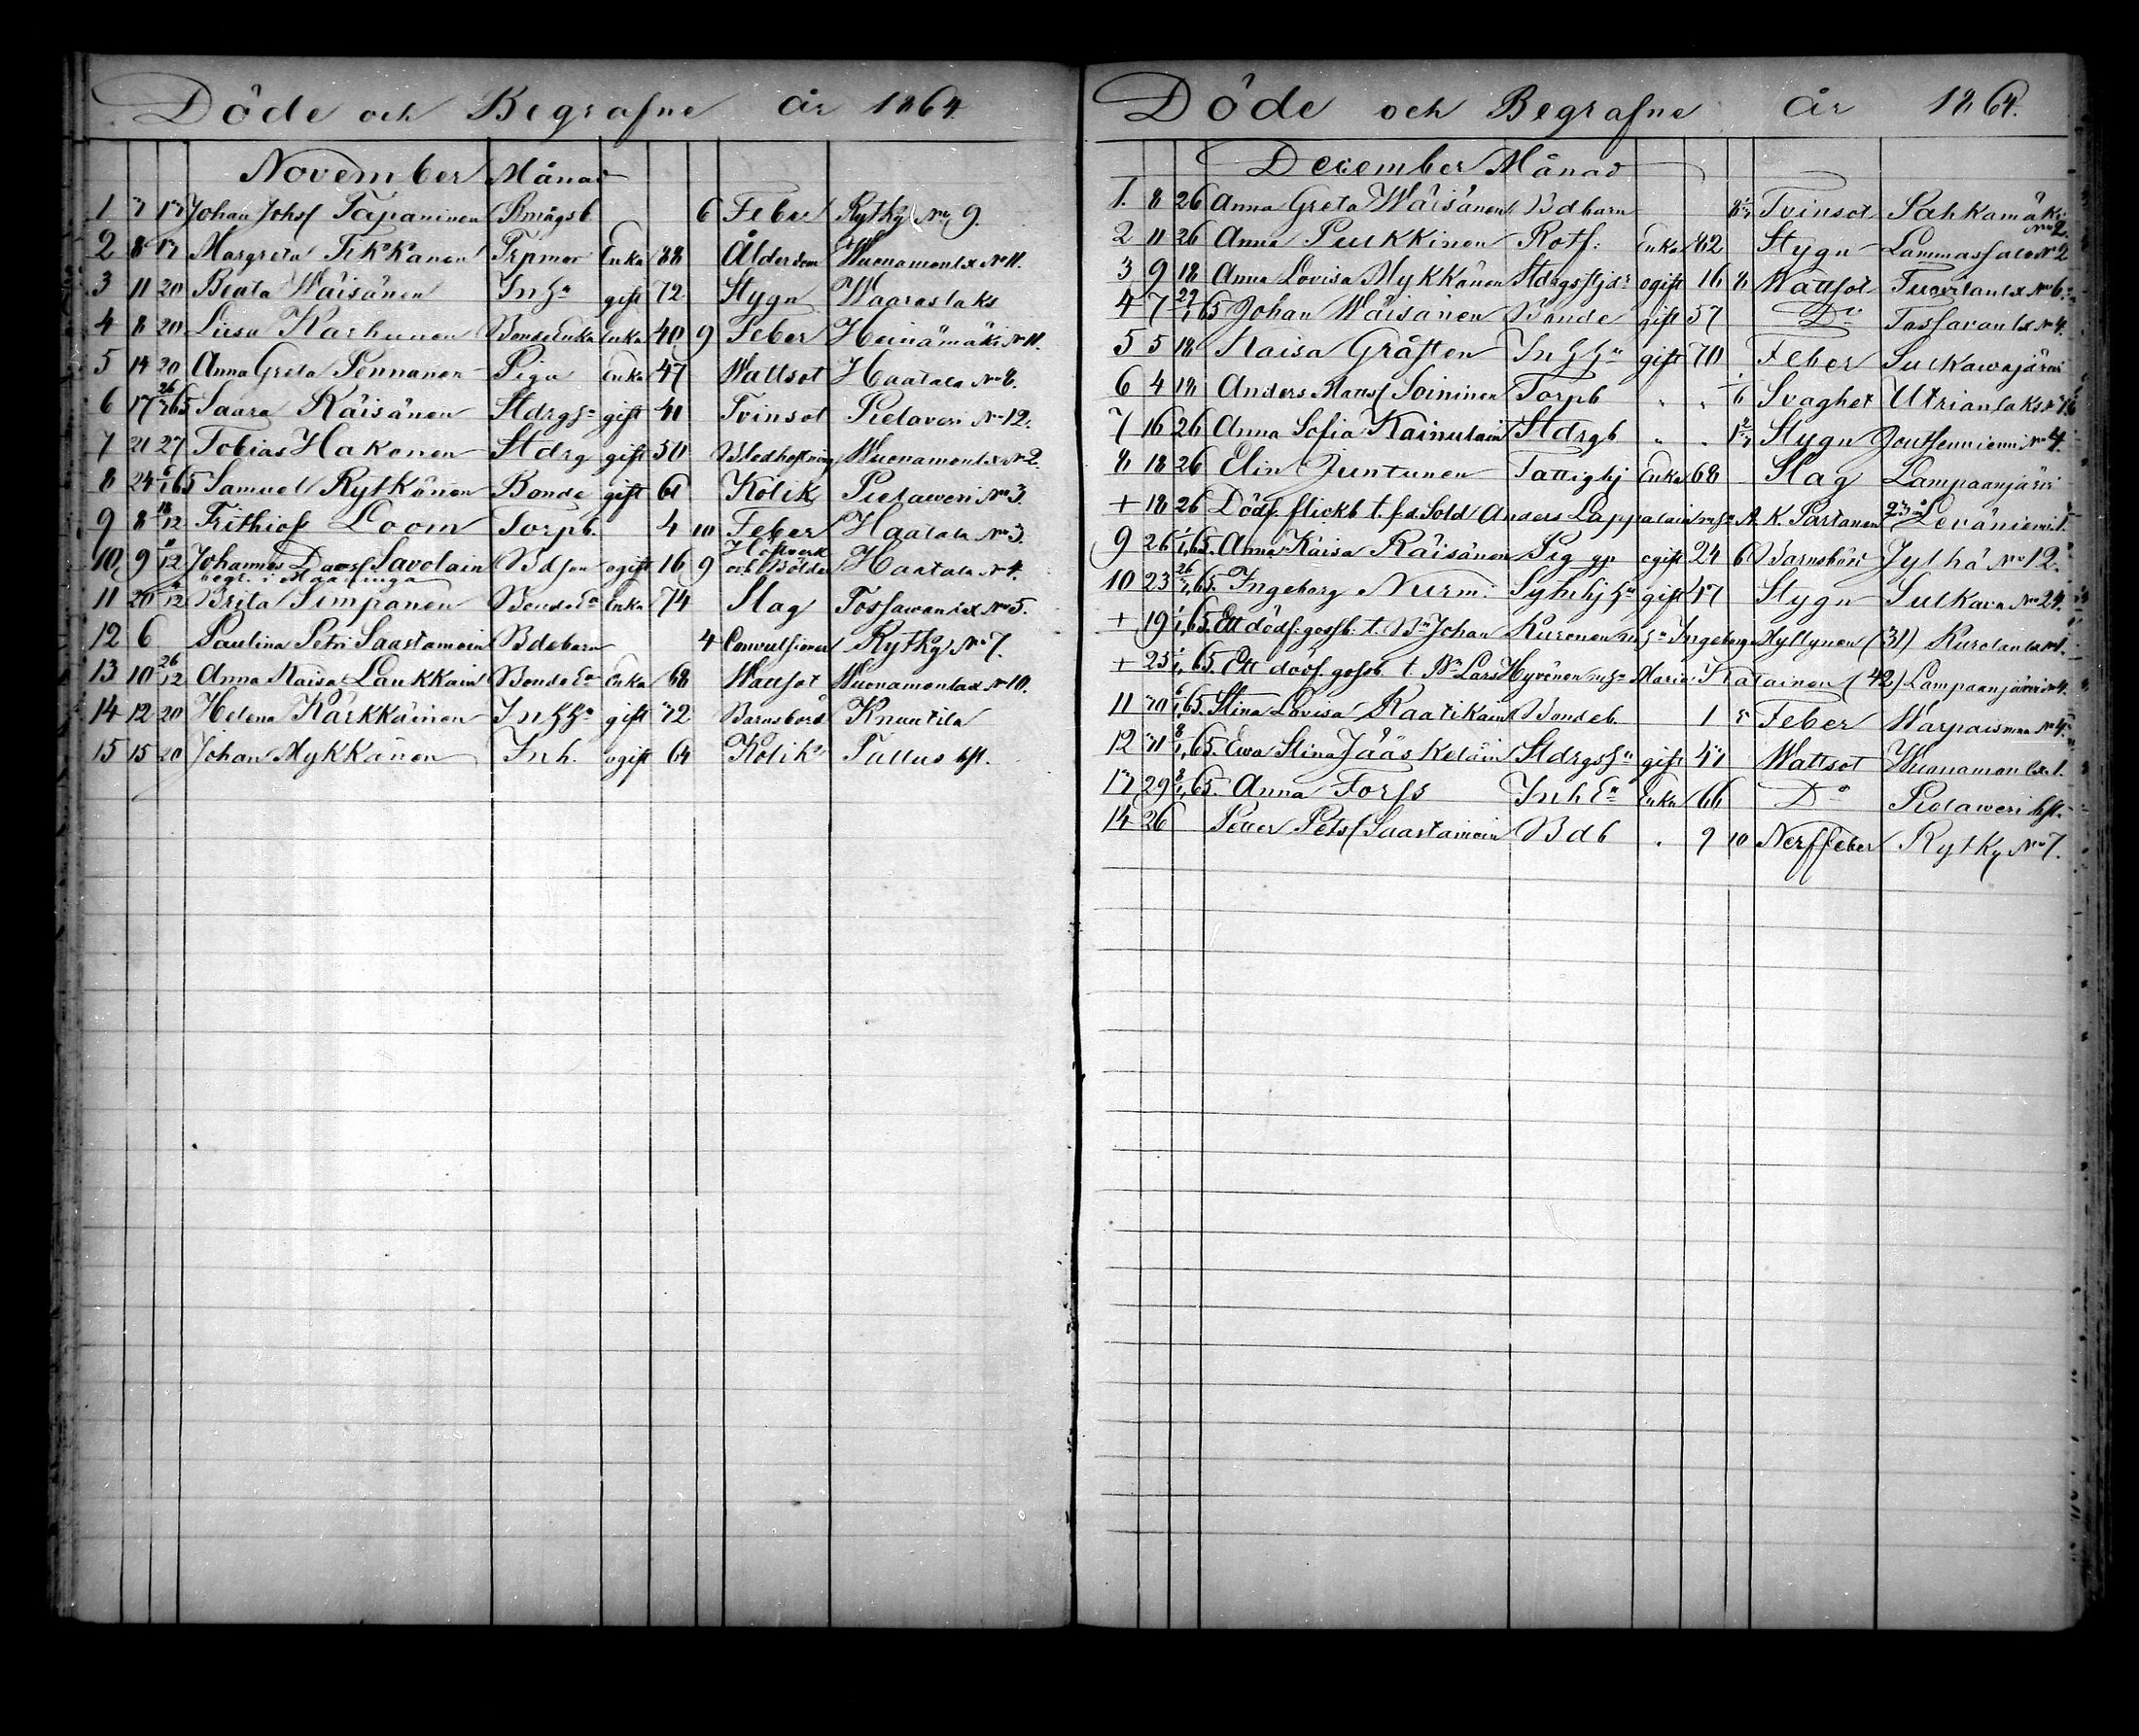 Döde och Begrafne år 1864.
November Månad
1 3 13 Johan Johsf Tapaninen Smågsb 6 Feber Rytky No 9.
2 8 13 Margreta Tikkanen Trpmor Enka 88 Ålderdom Wuonamonlax No 11.
3 11 20 Beata Wäisänen Inha gift 72 Stygn Waaraslaks
4 8 20 Liisa Karhunen BondeEnka Enka 40 9 Feber Heinämäki No 11.
5 14 20 Anna Greta Pennanen Piga Enka 47 Wattsot Haatala No 8.
6 17 26/3 65 Saara Räisänen Stdrgha gift 41 Tvinsot Pielaveri No 12.
7 21 27 Tobias Hakonen Stdrg gift 50 Blodhostning Wuonamonlx No 2.
8 24 6/1 65 Samuel Rytkönen Bonde gift 61 Kolik Pielaweri No 3.
9 8 18/12 Frithiof Loom Torpb. 4 10 Feber Haatala No 3.
10 9 11/12 Johannes Davsf Savolain Bdson ogift 16 9 Höftverk och Bölder Haatala No 4.
begr. i Maaninga
11 20 4/12 Brita Simpanen BondeEa Enka 74 Slag Tossawanlax No 5.
12 6 Paulina Petri Saastamoin Bdebarn 4 Convulsioner Rytky No 7.
13 10 26/12 Anna Kaisa Laukkain BondeEa Enka 68 Wattsot Wuonamonlax No 10.
14 12 20 Helena Kärkkäinen Inhha gift 72 Barnsbörd Knuutila
15 15 20 Johan Mykkänen Inh. ogift 64 Kolik Tallus bst.
Döde och Begrafne år 1864.
December Månad
1. 8 26 Anna Greta Wäisänen Bdbarn Tvinsot Sahkamäki No 2
2 11 26 Anna Pulkkinen Rotf: Enka 82 Stygn Lammassalo No 2
3 9 18 Anna Lovisa Mykkänen Stdrgsstjdr ogift 16 8 Wattsot Tuovilanlx No 6.
4 7 29/1 65 Johan Wäisänen Bonde gift 57 Do Tossavanlx No 4.
5 5 18 Kaisa Gråsten Inhha gift 70 Feber Sulkawajärvi
6 4 18 Anders Mattsf Soininen Torpb " " 1/6 Svaghet Utrianlaks No 16
7 16 26 Anna Sofia Kainulain Stdrgb " " Stygn Joutsenniemi No 4.
8 18 26 Elin Juntunen Fattighj Enka 68 Slag Lampaanjärvi
+ 18 26 Dödf. flickb t. f.d. Sold Anders Lappalain m ha A. K. Partanen 23 år Leväniemi 1.
9 26 1/1 65. Anna Kaisa Räisänen Pig ogift 24 6 Barnsbörd Jylhä No 12.
10 23 26/3 65. Ingeborg Nurm. Sytnhjha gift 57 Stygn Sulkava No 24.
+ 19 1/1 65. Ett dödf: gossb. t. Bn Johan Kuronen m ha Ingeborg Myllynen (31) Kurolanlx 1.
+ 25 1/1 65. Ett dödf. gossb t Bn Lars Hyvönen m ha Maria Katainen (42) Lampaanjärvi No 4.
11 30 6/1 65. Stina Lovisa Raatikain Bondeb. 1 5 Feber Warpaismn No 4.
12 31 8/1 65. Ewa Stina Jääskeläin Stdrgsha gift 47 Wattsot Wuonamonlx 1.
13 29 8/1 65. Anna Forss InhEa Enka 66 Do Pielaweri bst.
14 26 Petter Petsf Saastamoin Bdb " 9 10 Nerffeber Rytky No 7.